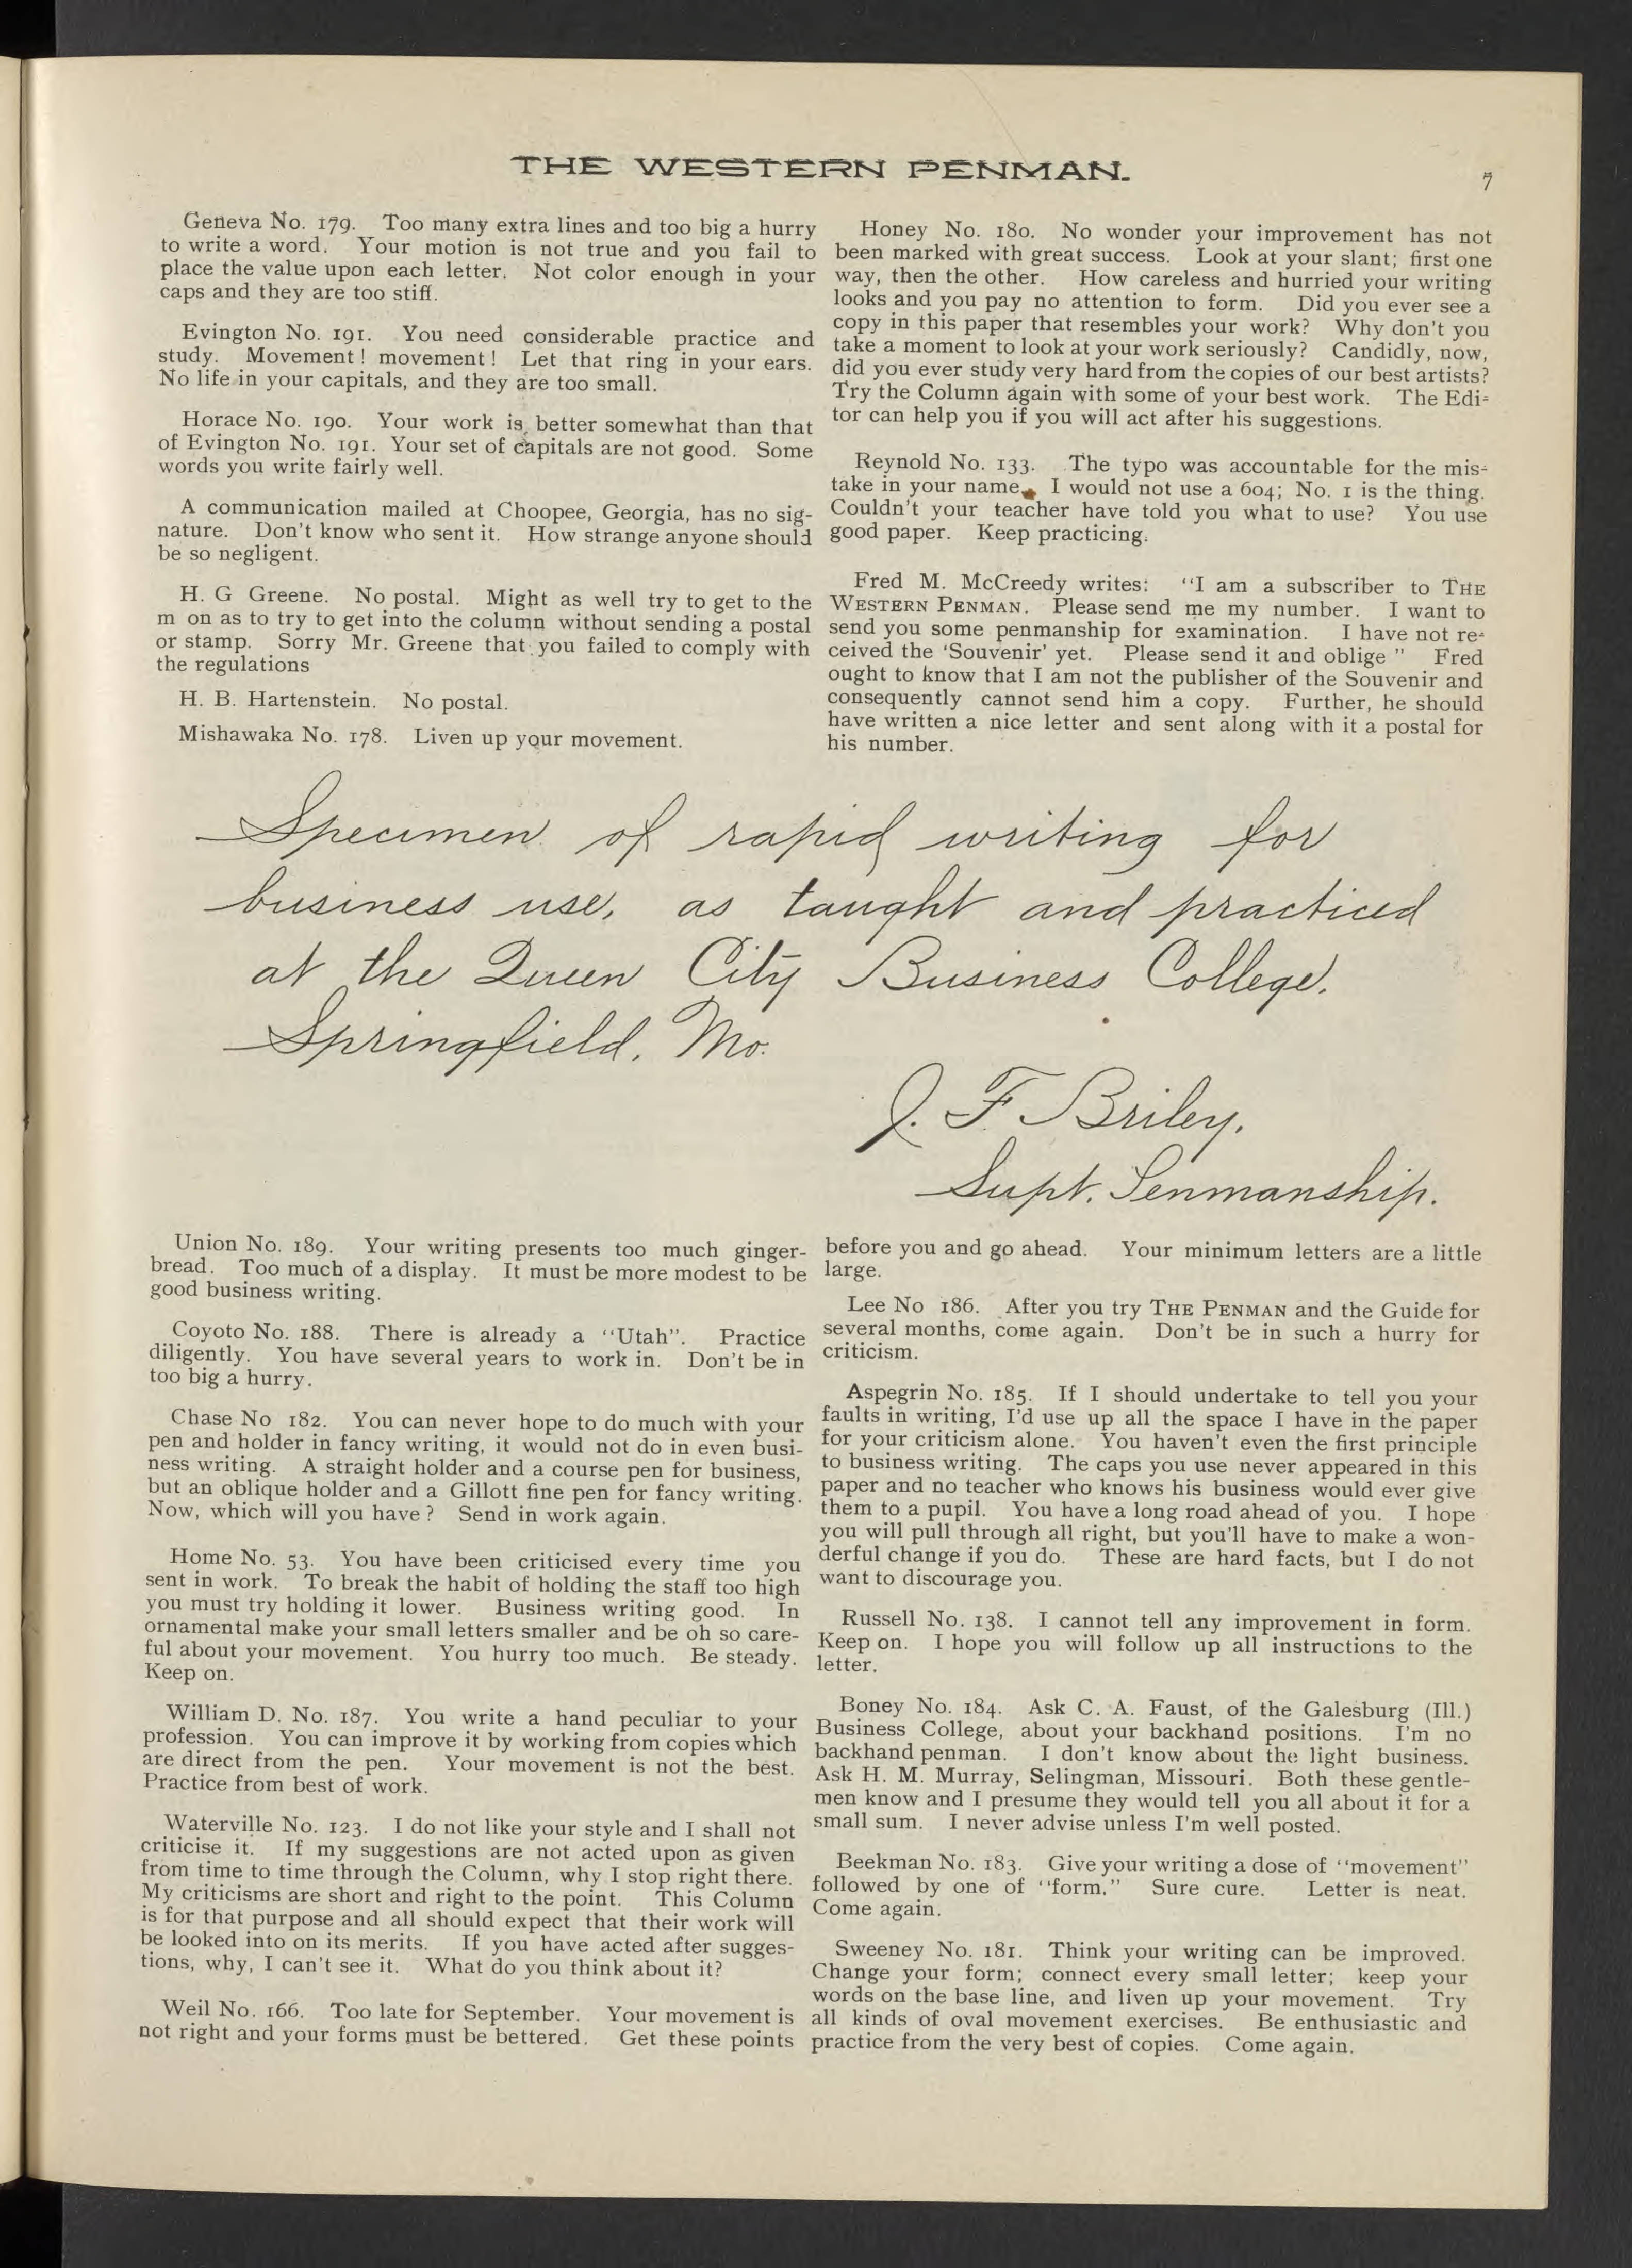 THE WESTERN PENMAN.
7
Geneva No. 179. Too many extra lines and too big a hurry
to write a word. Your motion is not true and you fail to
place the value upon each letter. Not color enough in your
caps and they are too stiff.
Evington No. 191. You need considerable practice and
study. Movement! movement! Let that ring in your ears.
No life in your capitals, and they are too small.
Horace No. 190. Your work is better somewhat than that
of Evington No. 191. Your set of capitals are not good. Some
words you write fairly well.
A communication mailed at Choopee, Georgia, has no sig-
nature. Don't know who sent it. How strange anyone should
be so negligent.
H. G Greene. No postal. Might as well try to get to the
m on as to try to get into the column without sending a postal
or stamp. Sorry Mr. Greene that you failed to comply with
the regulations
H. B. Hartenstein. No postal.
Mishawaka No. 178. Liven up your movement.
Honey No. 180. No wonder your improvement has not
been marked with great success. Look at your slant; first one
way, then the other. How careless and hurried your writing
looks and you pay no attention to form. Did you ever see a
copy in this paper that resembles your work? Why don't you
take a moment to look at your work seriously? Candidly, now,
did you ever study very hard from the copies of our best artists?
Try the Column again with some of your best work. The Edi-
tor can help you if you will act after his suggestions.
Reynold No. 133. The typo was accountable for the mis-
take in your name. I would not use a 604; No. 1 is the thing.
Couldn't your teacher have told you what to use? You use
good paper. Keep practicing.
Fred M. McCreedy writes: "I am a subscriber to THE
WESTERN PENMAN. Please send me my number. I want to
send you some penmanship for examination. I have not re-
ceived the 'Souvenir' yet. Please send it and oblige " Fred
ought to know that I am not the publisher of the Souvenir and
consequently cannot send him a copy. Further, he should
have written a nice letter and sent along with it a postal for
his number.
Specimen of rapid writing for
business use, as taught and practiced
at the Queen City Business College.
Springfield, Mo.
J. F. Briley.
Supt. Penmanship.
Union No. 189. Your writing presents too much ginger-
bread. Too much of a display. It must be more modest to be
good business writing.
Coyoto No. 188. There is already a "Utah". Practice
diligently. You have several years to work in. Don't be in
too big a hurry.
Chase No 182. You can never hope to do much with your
pen and holder in fancy writing, it would not do in even busi-
ness writing. A straight holder and a course pen for business,
but an oblique holder and a Gillott fine pen for fancy writing.
Now, which will you have? Send in work again.
Home No. 53. You have been criticised every time you
sent in work. To break the habit of holding the staff too high
you must try holding it lower. Business writing good. In
ornamental make your small letters smaller and be oh so care-
ful about your movement. You hurry too much. Be steady.
Keep on.
William D. No. 187. You write a hand peculiar to your
profession. You can improve it by working from copies which
are direct from the pen. Your movement is not the best.
Practice from best of work.
Waterville No. 123. I do not like your style and I shall not
criticise it. If my suggestions are not acted upon as given
from time to time through the Column, why I stop right there.
My criticisms are short and right to the point. This Column
is for that purpose and all should expect that their work will
be looked into on its merits. If you have acted after sugges-
tions, why, I can't see it. What do you think about it?
Weil No. 166. Too late for September. Your movement is
not right and your forms must be bettered. Get these points
before you and go ahead. Your minimum letters are a little
large.
Lee No 186. After you try THE PENMAN and the Guide for
several months, come again. Don't be in such a hurry for
criticism.
Aspegrin No. 185. If I should undertake to tell you your
faults in writing, I'd use up all the space I have in the paper
for your criticism alone. You haven't even the first principle
to business writing. The caps you use never appeared in this
paper and no teacher who knows his business would ever give
them to a pupil. You have a long road ahead of you. I hope
you will pull through all right, but you'll have to make a won-
derful change if you do. These are hard facts, but I do not
want to discourage you.
Russell No. 138. I cannot tell any improvement in form.
Keep on. I hope you will follow up all instructions to the
letter.
Boney No. 184. Ask C. A. Faust, of the Galesburg (Ill.)
Business College, about your backhand positions. I'm no
backhand penman. I don't know about the light business.
Ask H. M. Murray, Selingman, Missouri. Both these gentle-
men know and I presume they would tell you all about it for a
small sum. I never advise unless I'm well posted.
Beekman No. 183. Give your writing a dose of "movement"
followed by one of "form." Sure cure. Letter is neat.
Come again.
Sweeney No. 181. Think your writing can be improved.
Change your form; connect every small letter; keep your
words on the base line, and liven up your movement. Try
all kinds of oval movement exercises. Be enthusiastic and
practice from the very best of copies. Come again.